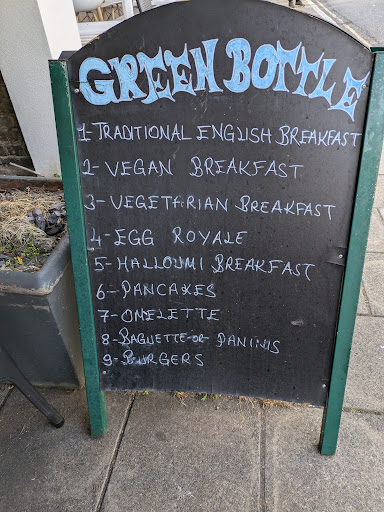 GREEN BOTTLE
1-TRADITIONAL ENGLISH BREAKFAST
2-VEGAN BREAKFAST
3-VEGETARIAN BREAKFAST
4-EGG ROYALE
5-HALLOUMI BREAKFAST
6-PANCAKES
7-OMELETTE
8-BAGUETTE OR PANINIS
9-BURGERS